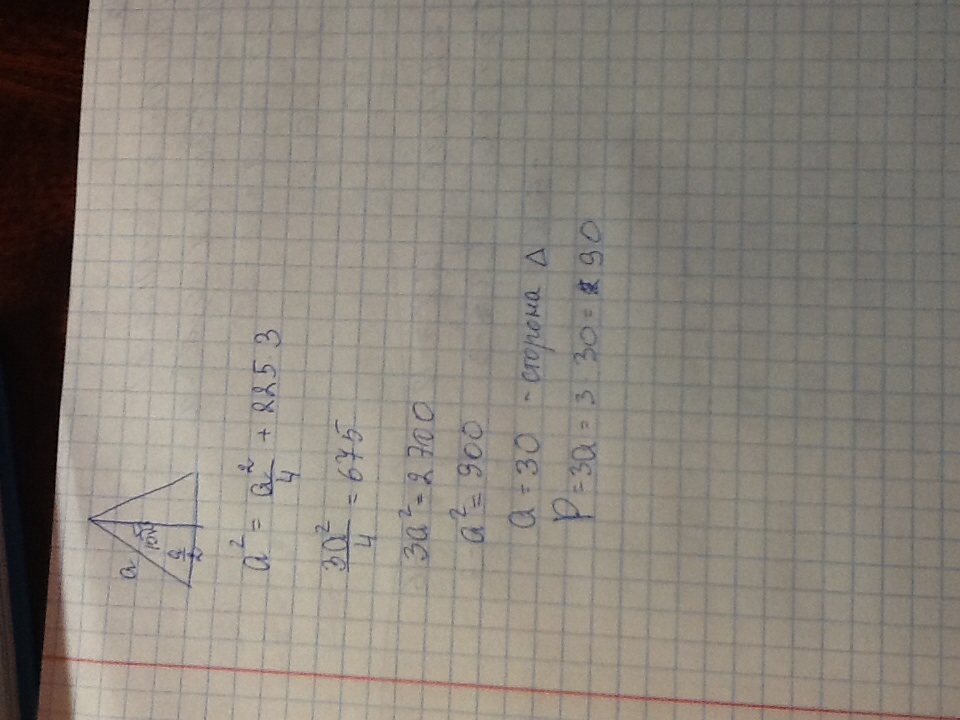 a
15√3
a/2
a² = a²/4 + 225·3
3a²/4 = 675
3a² = 2700
a² = 900
a = 30 - сторона Δ
P = 3a = 3 30 = 90